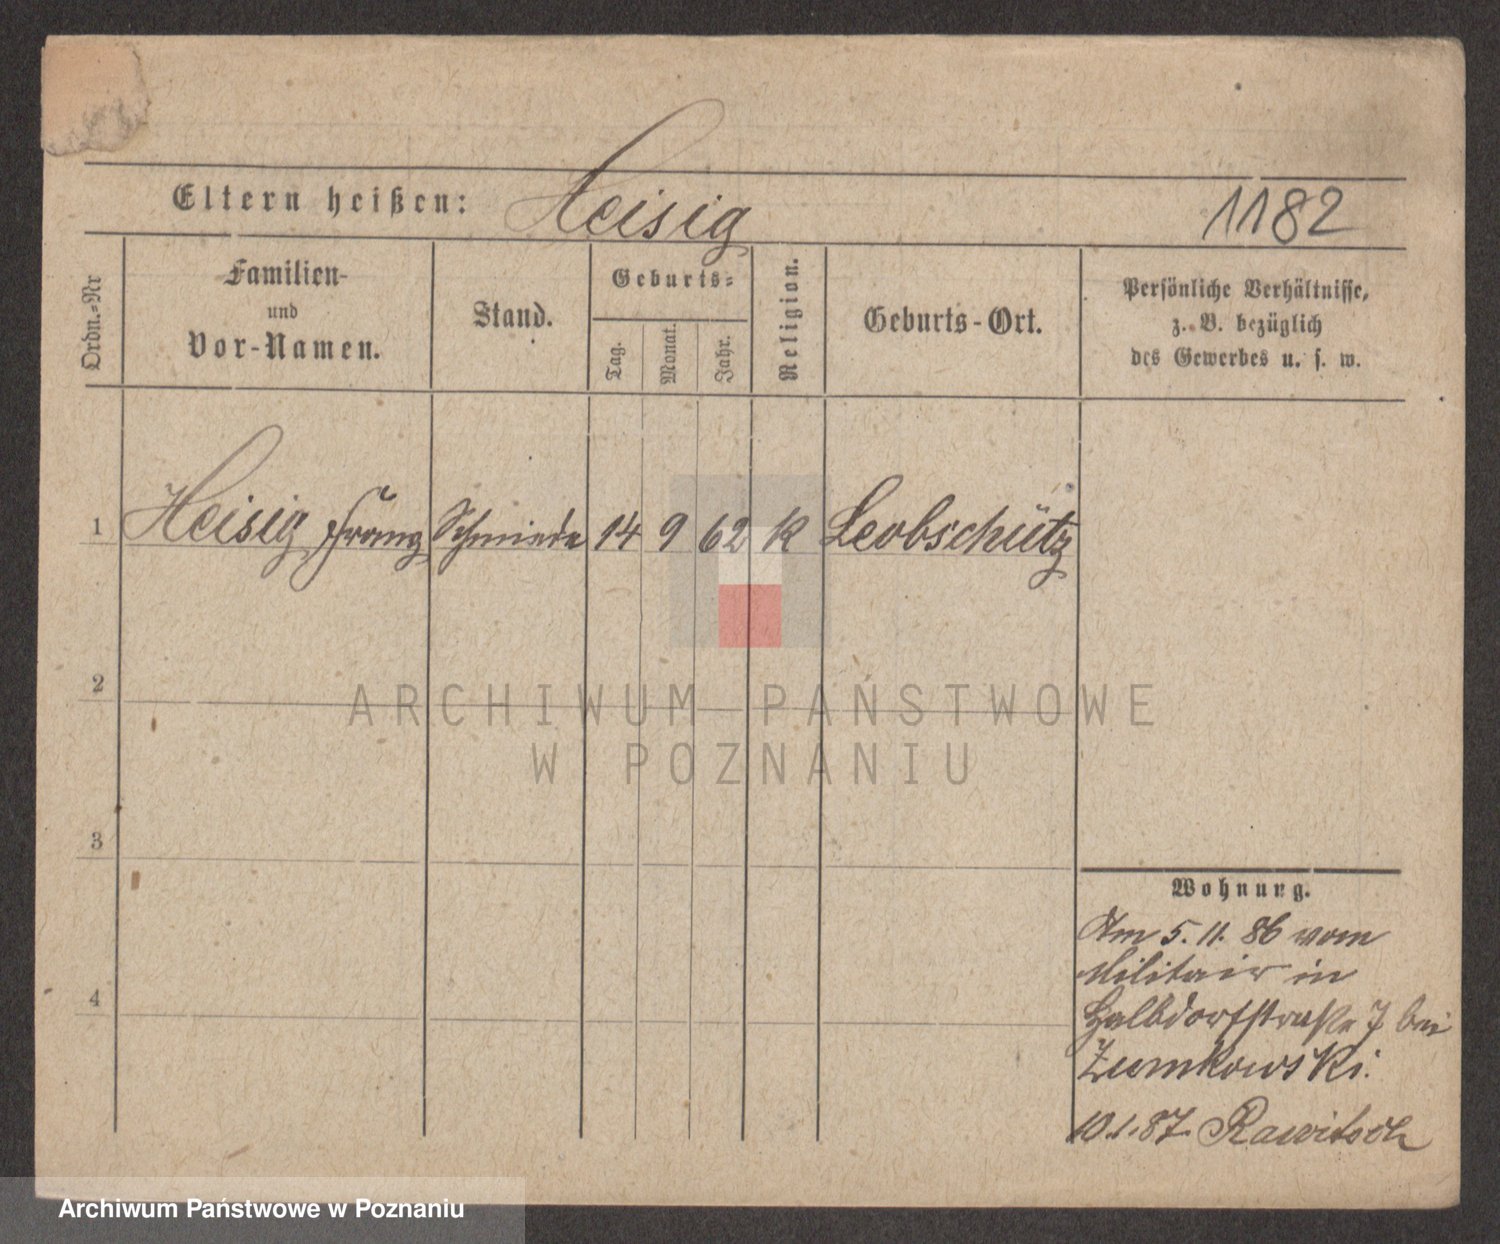 Eltern heißen: Heisig 1182
Ordn.-Nr
Familien-
und
Vor-Namen.
Stand.
Geburts-
Tag.
Monat.
Jahr.
Religion.
Geburts-Ort.
Persönliche Verhältnisse,
z. B. bezüglich
des Gewerbes u. s. w.
1 Heisig Franz Schmiede 14 9 62 K Leobschütz
2
3
4
Wohnung.
Am 5. 11. 86 vom
Militair in
Halbdorfstraße 7 bei
Zumkowski.
10.1.87. Rawitsch
ARCHIWUM PAŃSTWOWE
W POZNANIU
Archiwum Państwowe w Poznaniu